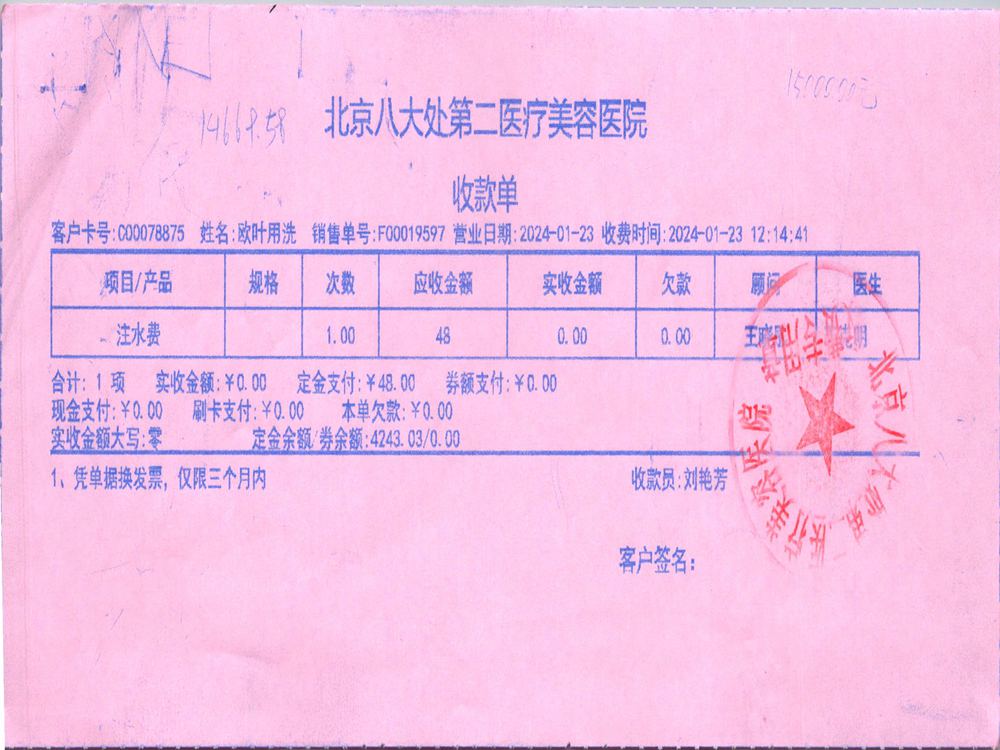 14669.58
1500000元
北京八大处第二医疗美容医院
收款单
客户卡号:C00078875 姓名:欧叶用洗 销售单号:F00019597 营业日期:2024-01-23 收费时间:2024-01-23 12:14:41
项目/产品 规格 次数 应收金额 实收金额 欠款 顾问 医生
注水费 1.00 48 0.00 0.00 王晓 明
合计: 1 项 实收金额:￥0.00 定金支付:￥48.00 券额支付:￥0.00
现金支付:￥0.00 刷卡支付:￥0.00 本单欠款:￥0.00
实收金额大写:零 定金余额/券余额:4243.03/0.00
1、凭单据换发票，仅限三个月内 收款员:刘艳芳
客户签名:
北京八大处第二医疗美容医院